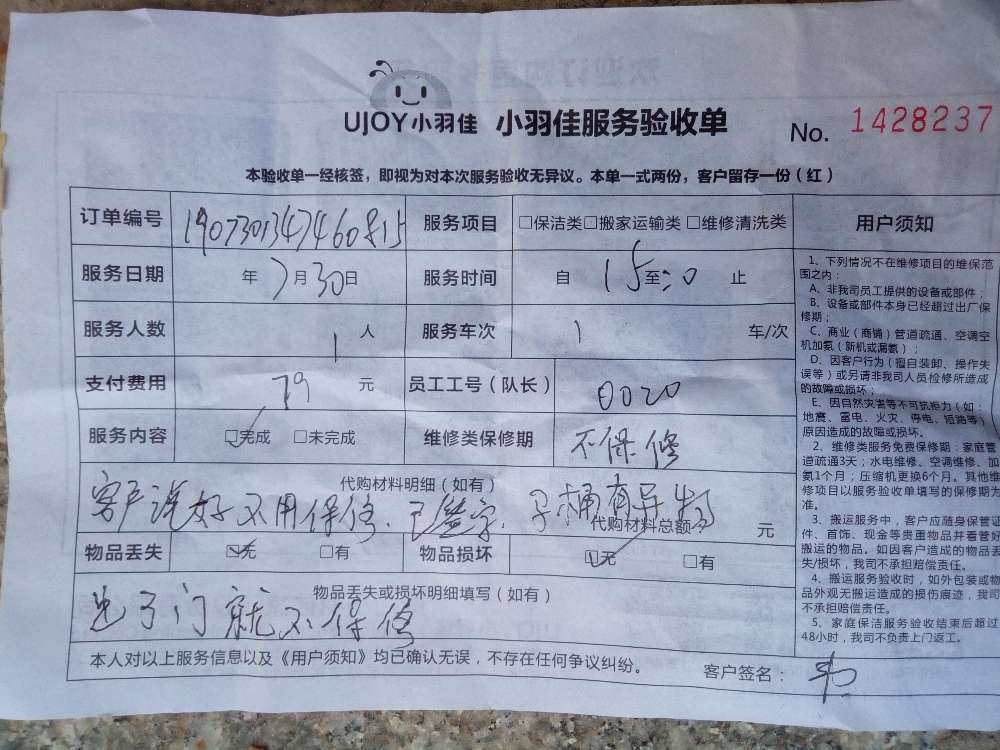 UJOY小羽佳 小羽佳服务验收单 No. 1428237
本验收单一经核签，即视为对本次服务验收无异议。本单一式两份，客户留存一份（红）
订单编号 服务项目 □保洁类□搬家运输类□维修清洗类
服务日期 年 7月30日 服务时间 自 15至:0 止
服务人数 1 人 服务车次 1 车/次
支付费用 79 元 员工工号（队长） 0020
服务内容 ☑完成 □未完成 维修类保修期 不保修
代购材料明细（如有）
客户说好不用保修.已签字.马桶有异物
代购材料总额 元
物品丢失 ☑无 □有 物品损坏 ☑无 □有
物品丢失或损坏明细填写（如有）
出了门就不保修
本人对以上服务信息以及《用户须知》均已确认无误，不存在任何争议纠纷。 客户签名：
用户须知
1、下列情况不在维修项目的维保范
围之内：
A、非我司员工提供的设备或部件；
B、设备或部件本身已经超过出厂保
修期；
C、商业（商铺）管道疏通、空调空
机加氨（新机或漏氨）；
D、因客户行为（擅自装卸、操作失
误等）或另请非我司人员检修所造成
的故障或损坏；
E、因自然灾害等不可抗拒力（如：
地震、雷电、火灾、停电、短路等）
原因造成的故障或损坏。
2、维修类服务免费保修期：家庭管
道疏通3天；水电维修、空调维修、加
氨1个月；压缩机更换6个月。其他维
修项目以服务验收单填写的保修期为
准。
3、搬运服务中，客户应随身保管证
件、首饰、现金等贵重物品并看管好
搬运的物品。如因客户造成的物品丢
失/损坏，我司不承担赔偿责任。
4、搬运服务验收时，如外包装或物
品外观无搬运造成的损伤痕迹，我司
不承担赔偿责任。
5、家庭保洁服务验收结束后超过
48小时，我司不负责上门返工。